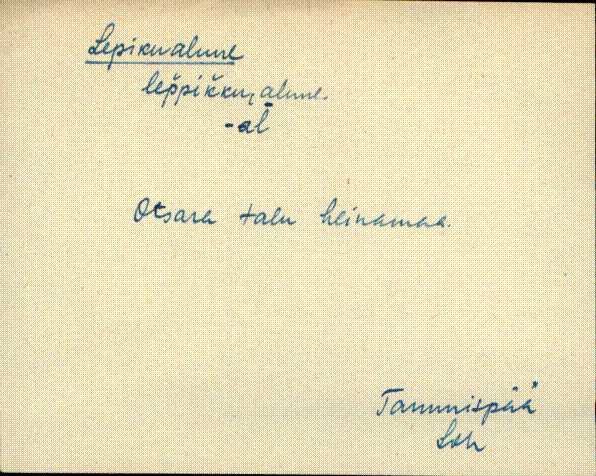 Lepikualune
lep̆pik̆ku̯alune.
-al̄
Otsara talu heinamaa.
Tammispää
Loh